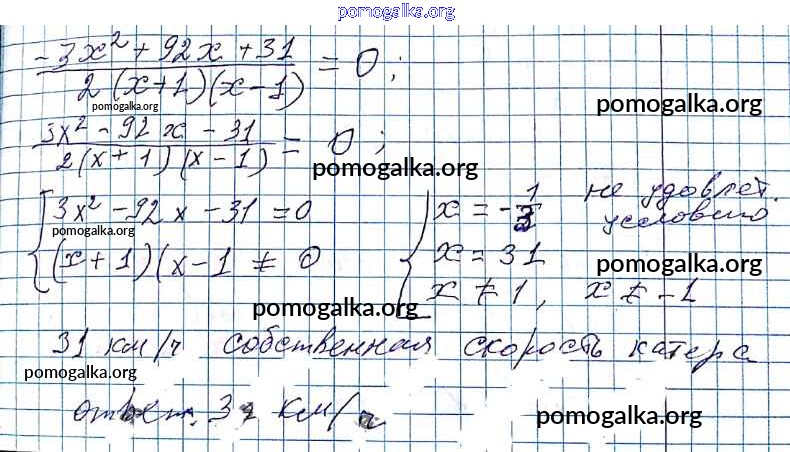 pomogalka.org
-3x² + 92x + 31 / 2(x+1)(x-1) = 0;
pomogalka.org
pomogalka.org
3x² - 92x - 31 / 2(x+1)(x-1) = 0;
pomogalka.org
3x² - 92x - 31 = 0
x = -1/3 не удовлет. условию
pomogalka.org
(x+1)(x-1 ≠ 0
x = 31
pomogalka.org
x ≠ 1, x ≠ -1
pomogalka.org
31 км/ч собственная скорость катера
pomogalka.org
ответ: 31 км/ч
pomogalka.org